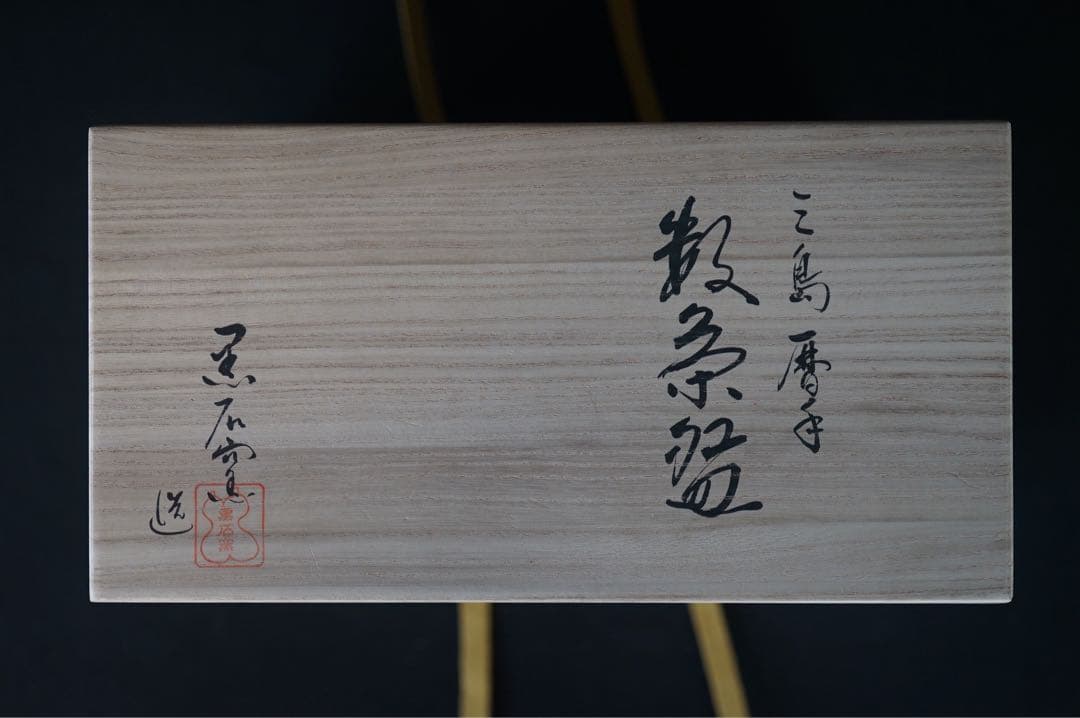 三島暦手
数茶盌
黒石窯
造
黒石窯